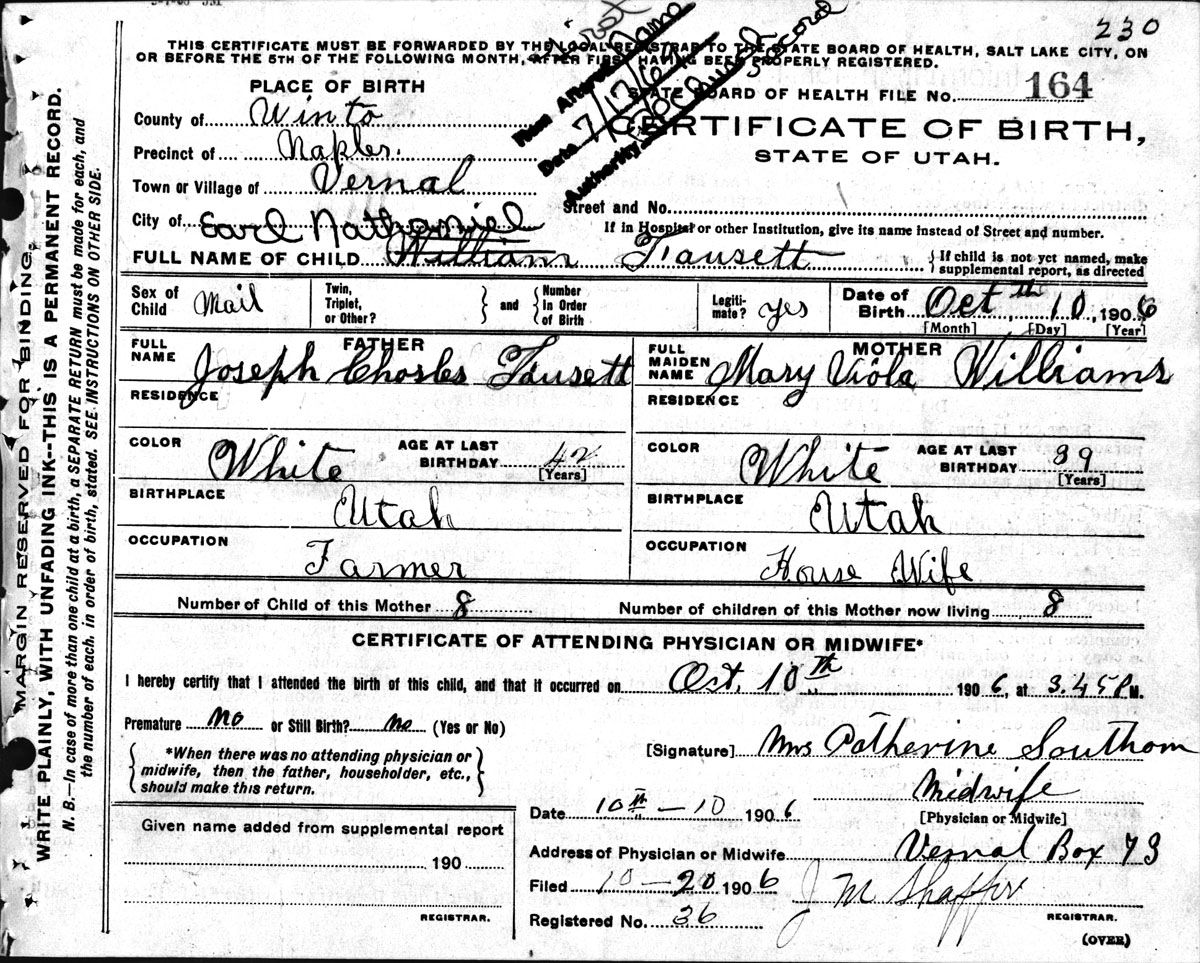 230
THIS CERTIFICATE MUST BE FORWARDED BY THE LOCAL REGISTRAR TO THE STATE BOARD OF HEALTH, SALT LAKE CITY, ON
OR BEFORE THE 5TH OF THE FOLLOWING MONTH, AFTER FIRST HAVING BEEN PROPERLY REGISTERED.
PLACE OF BIRTH
STATE BOARD OF HEALTH FILE No. 164
County of Winto
CERTIFICATE OF BIRTH,
Precinct of Naples.
STATE OF UTAH.
Town or Village of Vernal
Date 7/
Authority
Record
City of
Street and No.
Earl Nathaniel
If in Hospital or other Institution, give its name instead of Street and number.
FULL NAME OF CHILD William Fausett
{If child is not yet named, make
supplemental report, as directed
Sex of Child Mail
Twin, Triplet, or Other?
} and {
Number In Order of Birth
Legitimate? yes
Date of Birth Octth 10, 1906
[Month] [Day] [Year]
FATHER
FULL NAME Joseph Chosles Fausett
RESIDENCE
MOTHER
FULL MAIDEN NAME Mary Viola Williams
RESIDENCE
COLOR White
AGE AT LAST BIRTHDAY 42
[Years]
COLOR White
AGE AT LAST BIRTHDAY 39
[Years]
BIRTHPLACE Utah
BIRTHPLACE Utah
OCCUPATION Farmer
OCCUPATION House Wife
Number of Child of this Mother 8
Number of children of this Mother now living 8
CERTIFICATE OF ATTENDING PHYSICIAN OR MIDWIFE*
I hereby certify that I attended the birth of this child, and that it occurred on Oct. 10th 1906, at 3.45 P M.
Premature no or Still Birth? no (Yes or No)
{*When there was no attending physician or
midwife, then the father, householder, etc.,
should make this return.}
[Signature] Mrs Catherine Southom
Midwife
[Physician or Midwife]
Date 10th — 10 1906
Given name added from supplemental report
190
REGISTRAR.
Address of Physician or Midwife Vernal Box 73
Filed 10 — 20 1906
J M Shaffer
REGISTRAR.
Registered No. 36
(OVER)
MARGIN RESERVED FOR BINDING.
WRITE PLAINLY, WITH UNFADING INK--THIS IS A PERMANENT RECORD.
N. B.—In case of more than one child at a birth, a SEPARATE RETURN must be made for each, and
the number of each, in order of birth, stated. SEE INSTRUCTIONS ON OTHER SIDE.